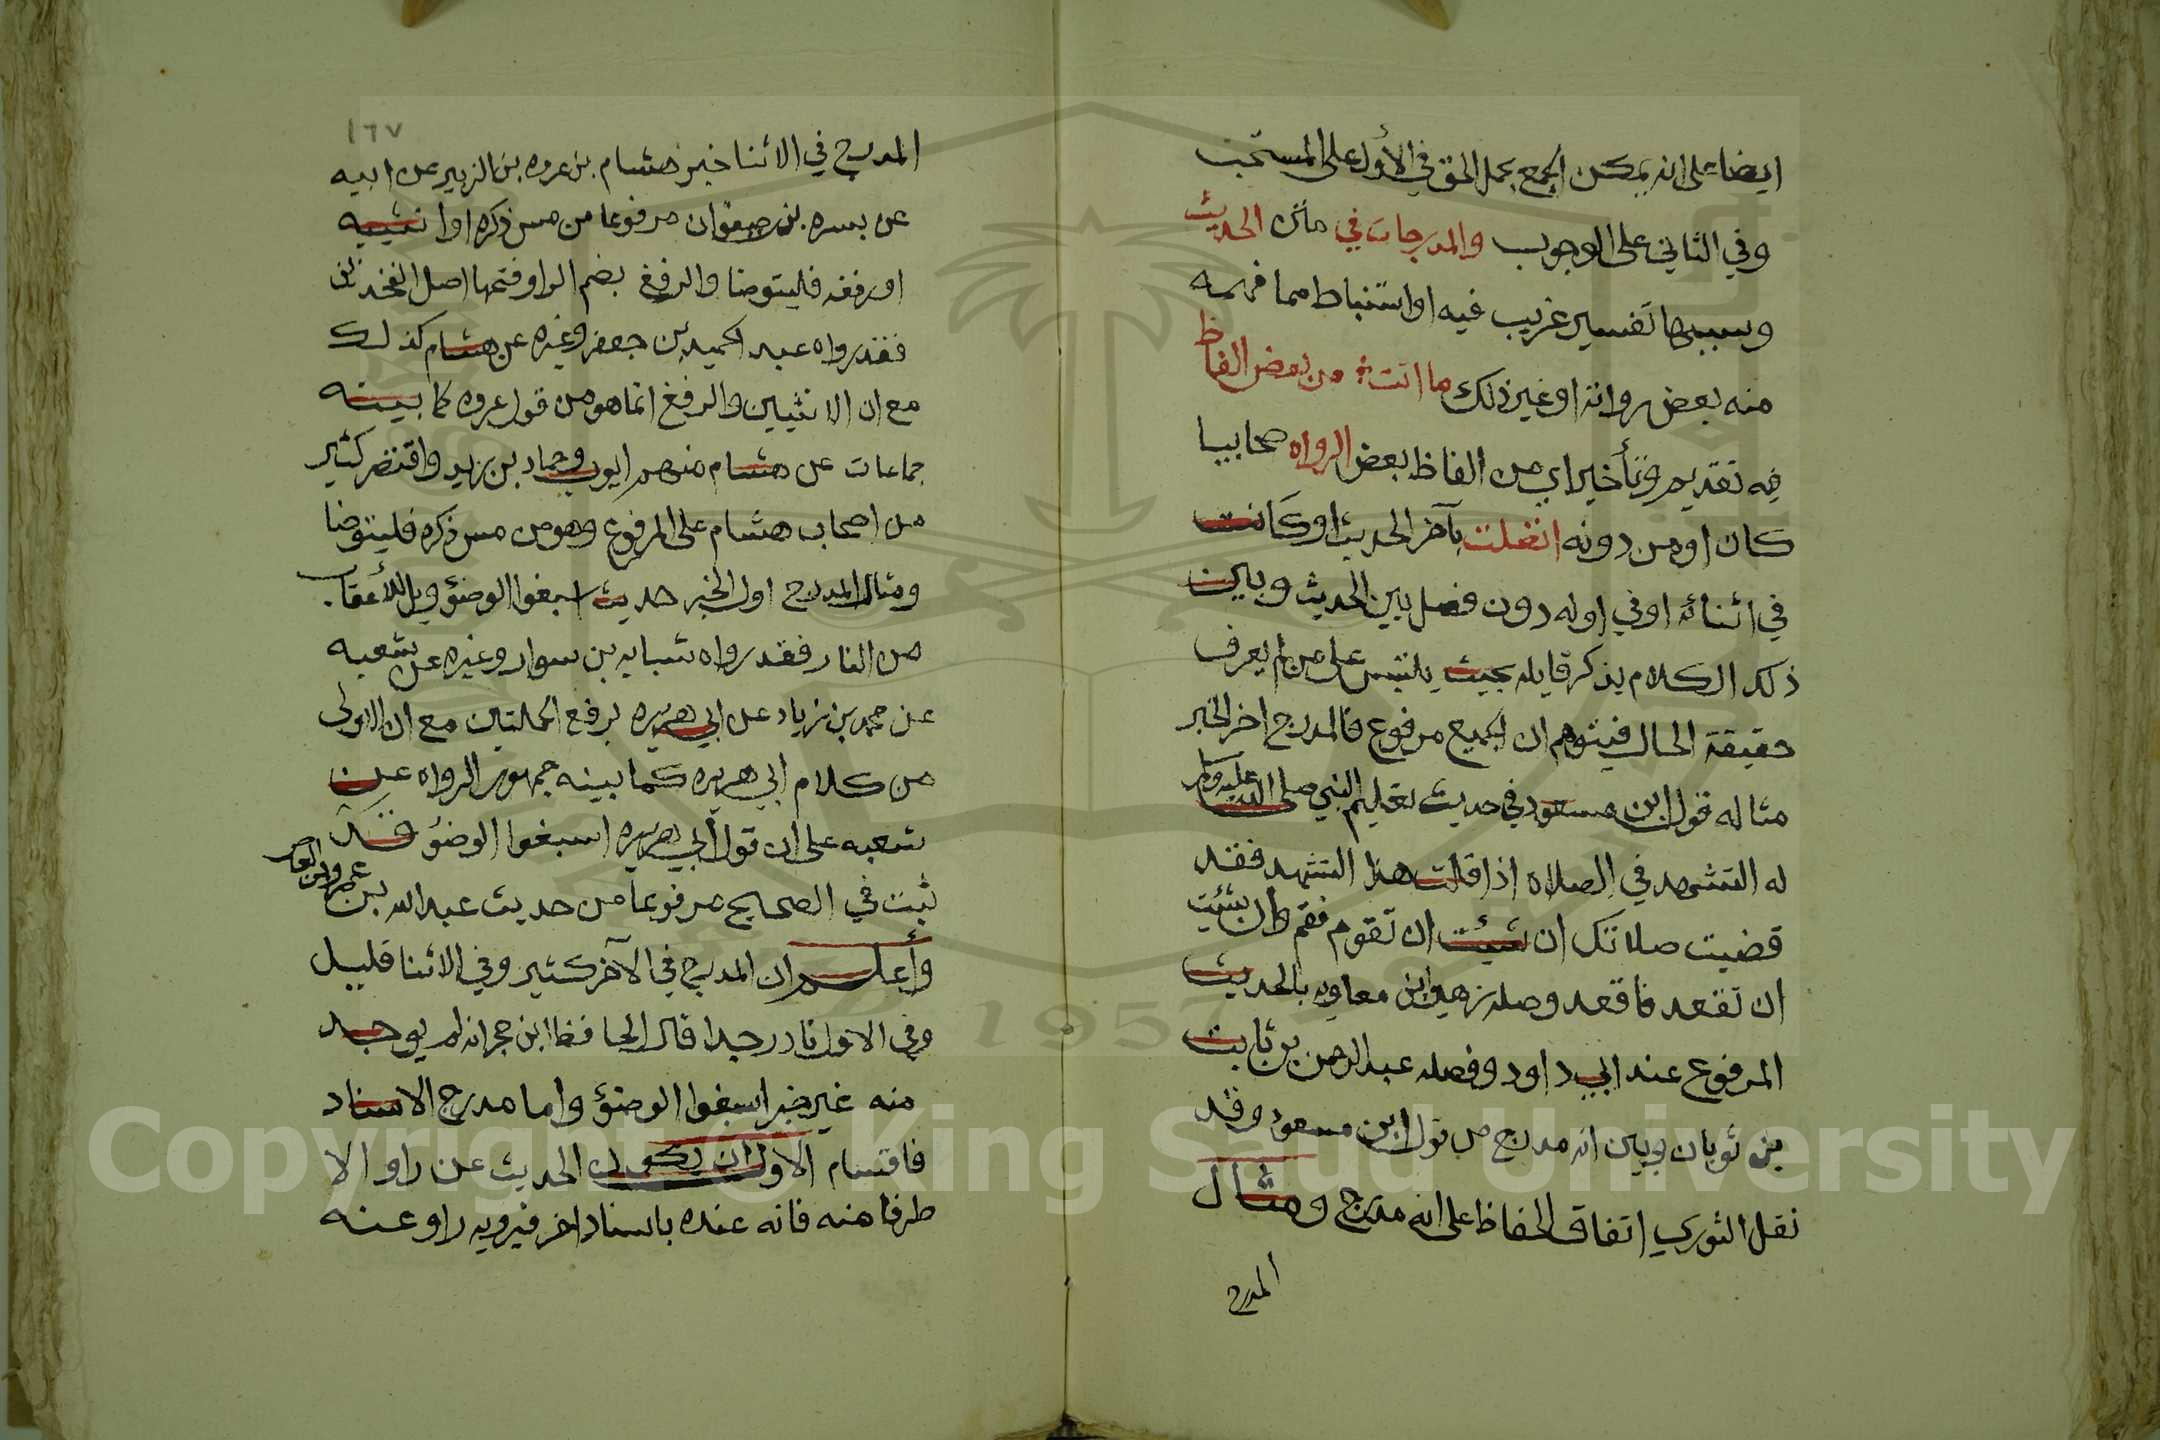 ايضا على انه يمكن الجمع بحمل الحق في الأول على المستحب
وفي الثاني على الوجوب والمدرجات في متن الحديث
وسببها تفسير غريب فيه او استنباط مما فهمه
منه بعض رواته او غير ذلك ما اتت من بعض الفاظ
فيه تقديم وتأخير اي من الفاظ بعض الرواه صحابيا
كان او من دونه اتصلت بآخر الحديث او كانت
في اثنائه او في اوله دون فصل بين الحديث وبين
ذلك الكلام يذكر قايله بحيث يلتبس على من لم يعرف
حقيقة الحال فيتوهم ان الجميع مرفوع فالمدرج اخر الخبر
مثاله قول ابن مسعود في حديث تعليم النبي صلى الله عليه وسلم
له التشهد في الصلاه اذا قلت هذا التشهد فقد
قضيت صلاتك ان شيئت ان تقوم فقم وان شئت
ان تقعد فاقعد وصله زهير ابن معاويه بالحديث
المرفوع عند ابي داود وفصله عبد الرحمن بن ثابت
بن ثوبان وبين انه مدرج من قول ابن مسعود وقد
نقل النوري اتفاق الحفاظ على انه مدرج ومثال
المدرج
١٦٧
المدرج في الاثنا خبر هشام بن عروه بن الزبير عن ابيه
عن بسره بن صفوان مرفوعا من مس ذكره او انثييه
او رفغه فليتوضا والرفغ بضم الرا وفتحها اصل الفخذين
فقد رواه عبد الحميد بن جعفر وغيره عن هشام كذلك
مع ان الانثيين والرفغ انما هو من قول عروه كما بينه
جماعات عن هشام منهم ايوب وحماد بن زيد واقتصر كثير
من اصحاب هشام على المرفوع وهو من مس ذكره فليتوضا
ومثال المدرج اول الخبر حديث اسبغوا الوضؤ ويل للأعقاب
من النار فقد رواه شبابه بن سوار وغيره عن شعبه
عن محمد بن زياد عن ابي هريره برفع الجملتين مع ان الاولى
من كلام ابي هريره كما بينه جمهور الرواه عن
شعبه على ان قول أبي هريره اسبغوا الوضؤ قد
ثبت في الصحيح مرفوعا من حديث عبد الله بن عمرو بن العاص
وأعلم ان المدرج في الآخر كثير وفي الاثنا قليل
وفي الاول نادر جدا قال الحافظ ابن حجر انه لم يوجد
منه غير خبر اسبغوا الوضؤ واما مدرج الاسناد
فاقسام الاول ان يكون الحديث عن راو الا
طرفا منه فانه عنده باسناد اخر فيرويه راو عنه
Copyright © King Saud University
1957